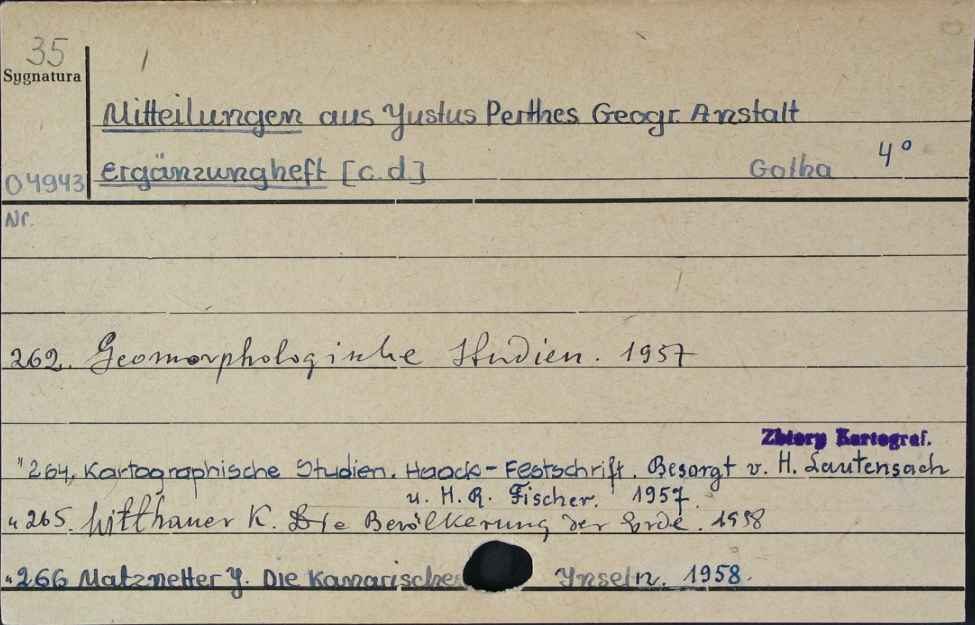 35
Sygnatura
Mitteilungen aus Yustus Perthes Geogr. Anstalt
04943 Ergänzungheft [c.d.] Gotha 4°
Nr.
262. Geomorphologische Studien. 1957
Zbiory Kartograf.
"264. Kartographische Studien. Haack-Festschrift. Besorgt v. H. Lautensach
u. H.R. Fischer. 1957.
"265. Witthauer K. Die Bevölkerung der Erde. 1958
"266 Matznetter J. Die Kanarischen Ynseln. 1958.